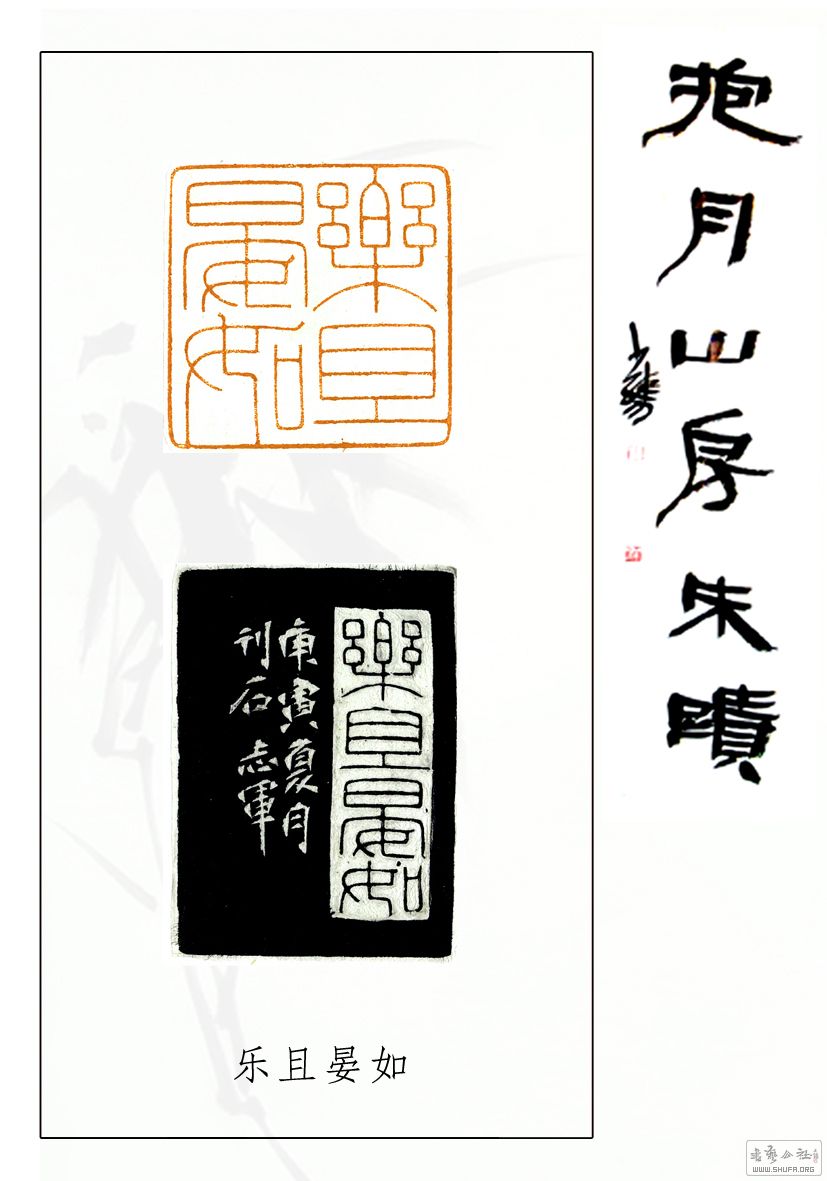 抱月山房朱蹟
樂且晏如
樂且晏如
庚寅夏月
刊石 志軍
乐且晏如
书艺公社
WWW.SHUFA.ORG